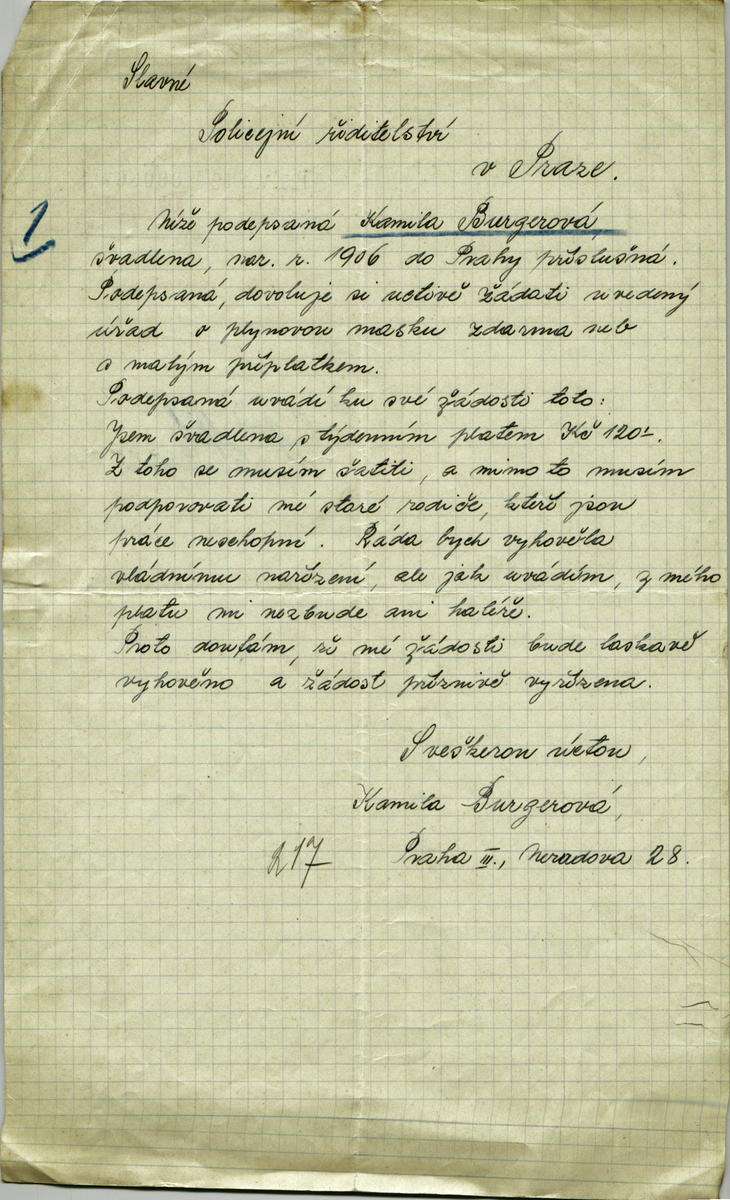 Slavné
Policejní řiditelství
v Praze.
1
Níže podepsaná Kamila Burgerová,
švadlena, nar. r. 1906 do Prahy příslušná.
Podepsaná, dovoluje si uctivě žádati uvedený
úřad o plynovou masku zdarma neb
s malým příplatkem.
Podepsaná uvádí ku své žádosti toto:
Jsem švadlena, s týdenním platem Kč 120·-.
Z toho se musím šatiti, a mimo to musím
podporovati mé staré rodiče, kteří jsou
práce neschopní. Ráda bych vyhověla
vládnímu nařízení, ale jak uvádím, z mého
platu mi nezbude ani haléře.
Proto doufám, že mé žádosti bude laskavě
vyhověno a žádost příznivě vyřízena.
S veškerou úctou,
Kamila Burgerová,
217 Praha III., Nerudova 28.